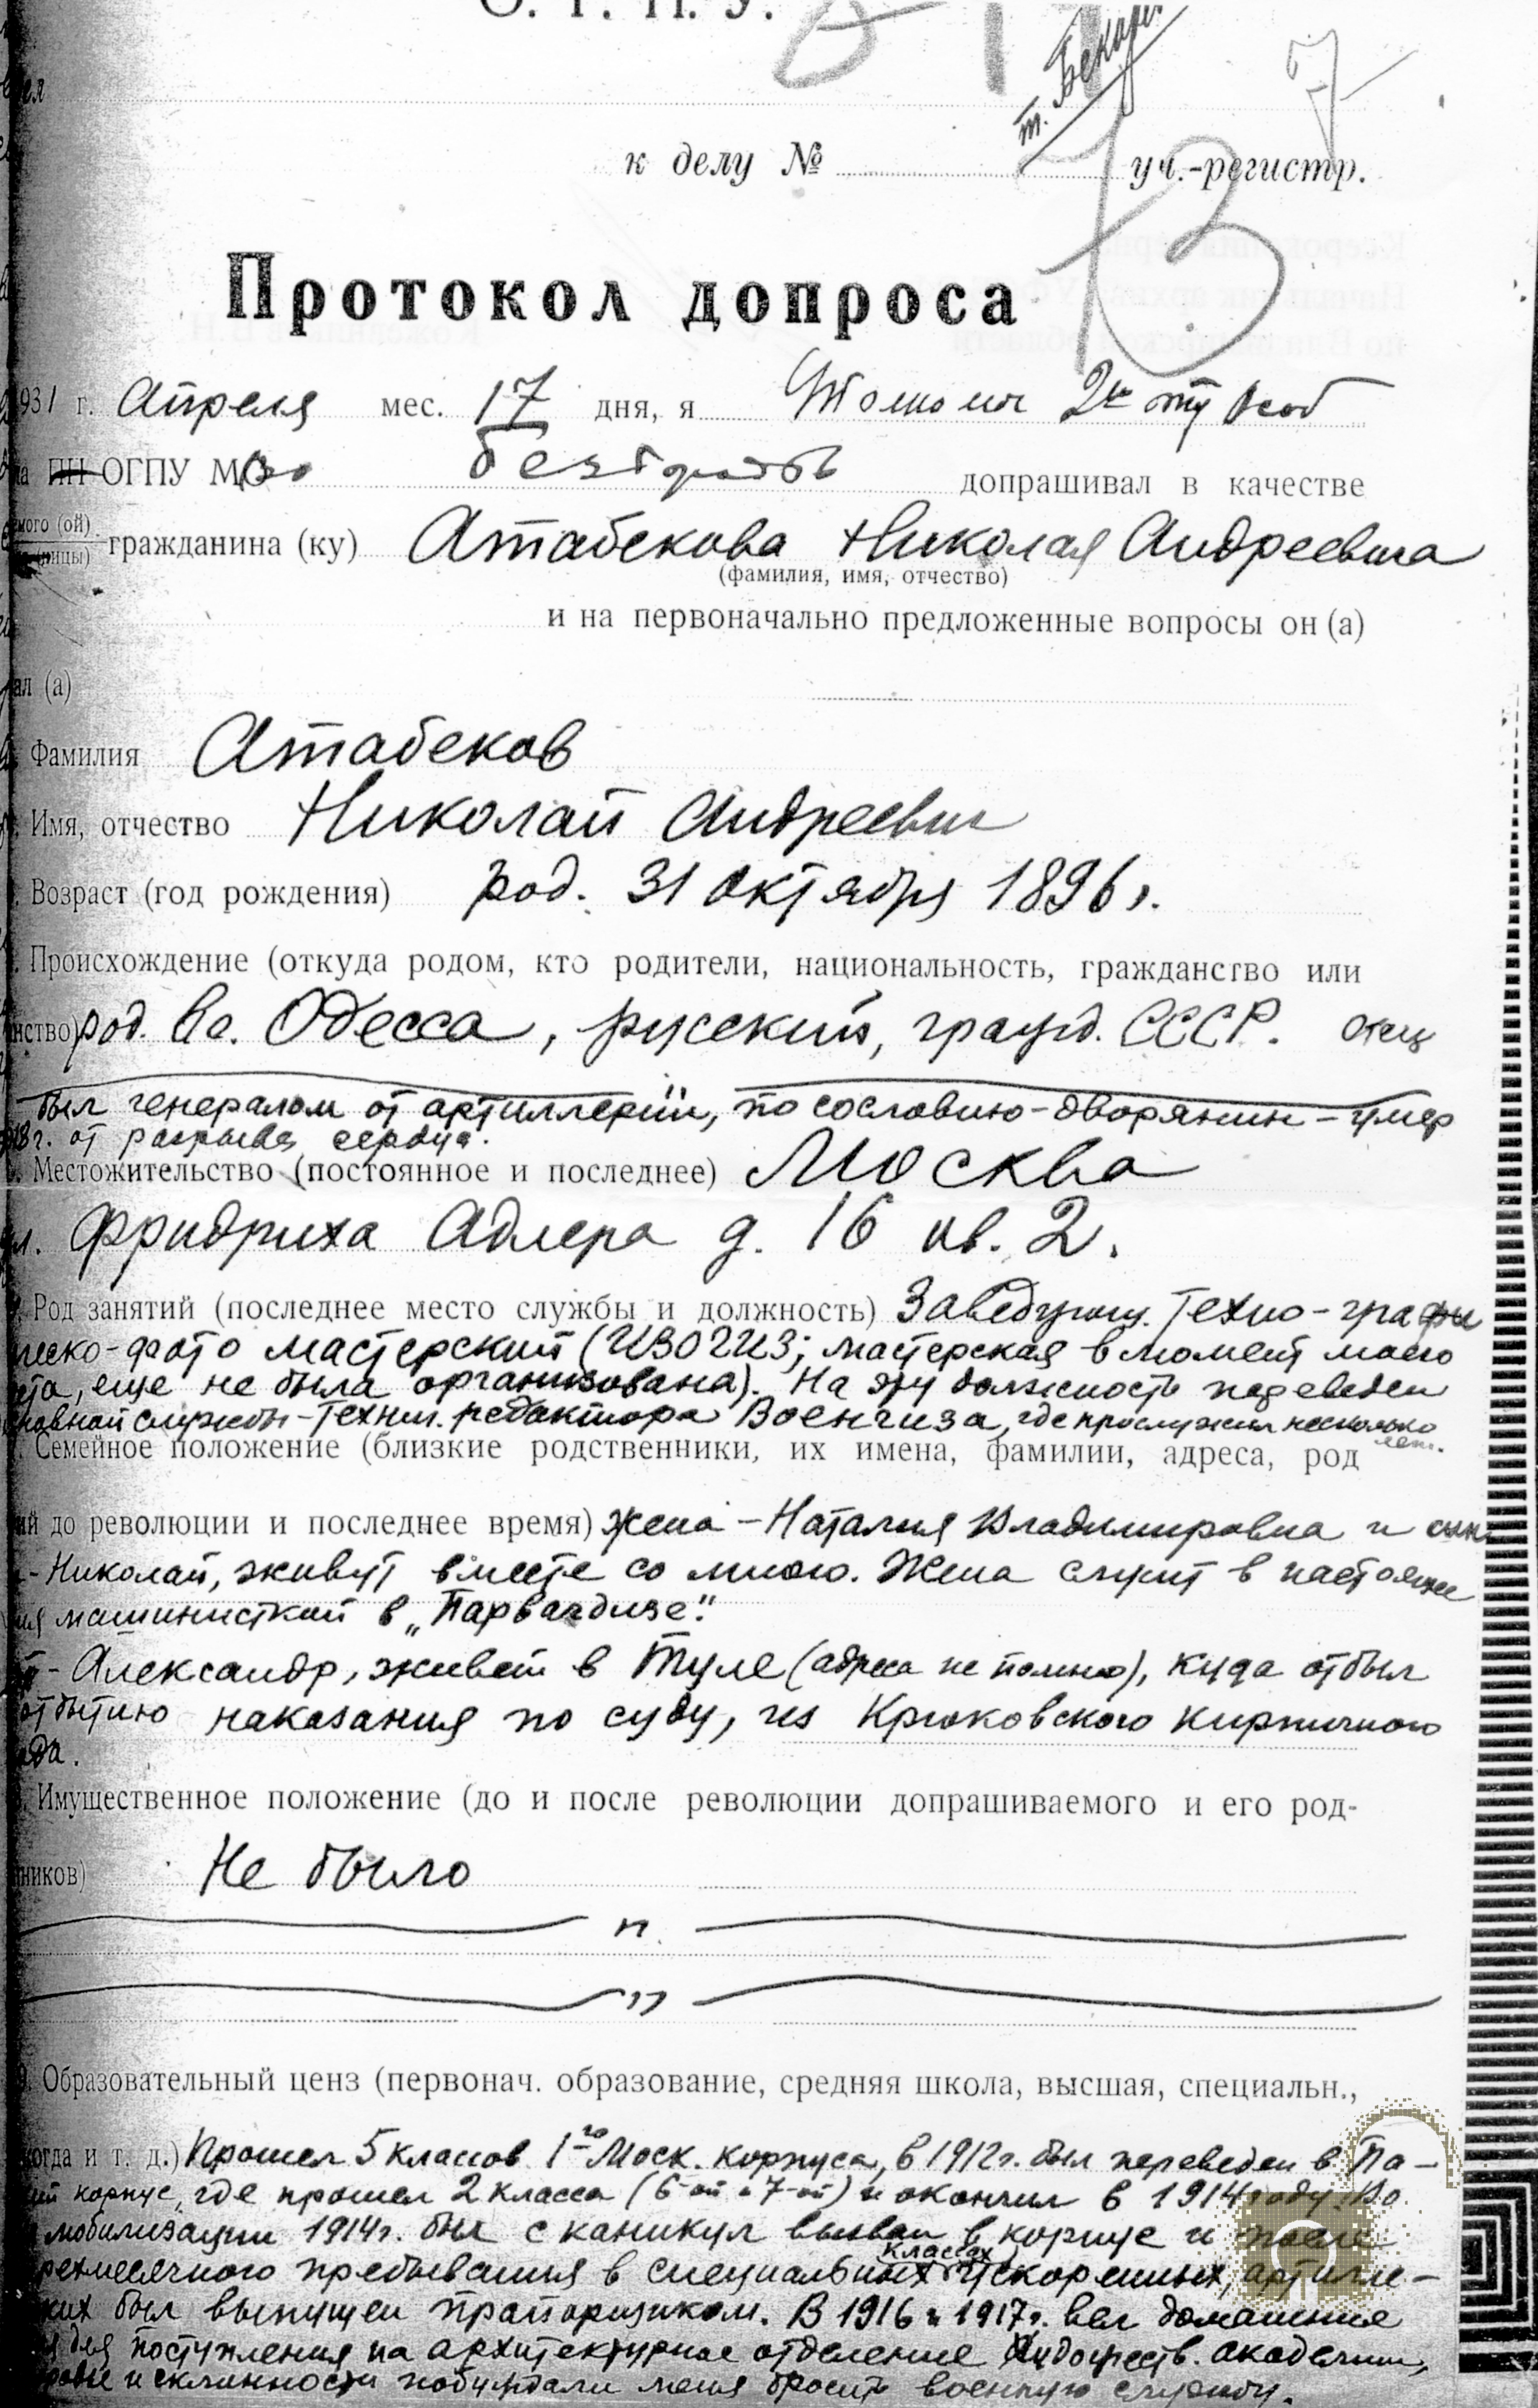 О. Г. П. У.
т. Бекаре
к делу № уч.-регистр.
13
Протокол допроса
931 г. Апреля мес. 17 дня, я
ПП ОГПУ МО допрашивал в качестве
мого (ой) гражданина (ку) Атабекова Николая Андреевича
(фамилия, имя, отчество)
и на первоначально предложенные вопросы он (а)
ал (а)
Фамилия Атабеков
Имя, отчество Николай Андреевич
Возраст (год рождения) род. 31 октября 1896 г.
Происхождение (откуда родом, кто родители, национальность, гражданство или
нство) род. в г. Одесса, русский, гражд. СССР. Отец
был генералом от артиллерии, по сословию - дворянин - умер
18 г. от разрыва сердца.
Местожительство (постоянное и последнее) Москва
ул. Фридриха Адлера д. 16 кв. 2.
Род занятий (последнее место службы и должность) Заведующ. Техно-графи
ческо-фото мастерской (ИЗОГИЗ; мастерская в момент моего
ста, еще не была организована). На эту должность переведен
службы - технич. редактора Военгиза, где прослужил несколько
лет.
Семейное положение (близкие родственники, их имена, фамилии, адреса, род
ий до революции и последнее время) Жена - Наталия Владимировна и сын
- Николай, живут вместе со мною. Жена служит в настоящее
мя машинисткой в „Партиздизе".
- Александр, живет в Туле (адреса не помню), куда отбыл
отбытию наказания по суду, из Крюковского кирпичного
ода.
Имущественное положение (до и после революции допрашиваемого и его род-
ников) Не было
"
"
9. Образовательный ценз (первонач. образование, средняя школа, высшая, специальн.,
когда и т. д.) Прошел 5 классов 1го Моск. корпуса, в 1912 г. был переведен в Па-
ий корпус, где прошел 2 класса (6-ой и 7-ой) и окончил в 1914 году. Во
мобилизации 1914 г. был с каникул вызван в корпус и после
классах
рехмесячного пребывания в специальных ускоренных, артилле-
ких был выпущен прапорщиком. В 1916 и 1917 г. вел домашние
для поступления на архитектурное отделение Художеств. академии,
и склонности побуждали меня бросить военную службу.